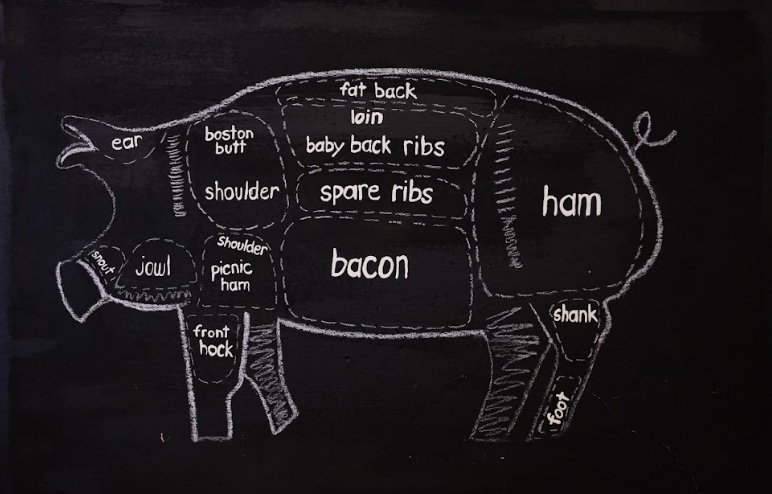 fat back
loin
baby back ribs
ear
boston
butt
shoulder
spare ribs
ham
snout
jowl
shoulder
picnic
ham
bacon
front
hock
shank
foot